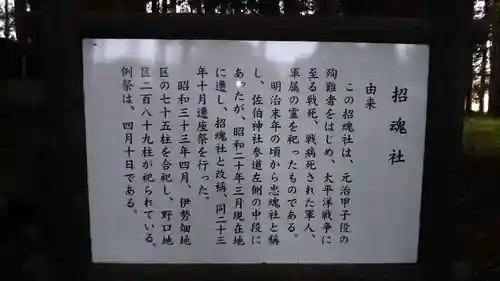 招魂社
由来
この招魂社は、元治甲子役の
殉難者をはじめ、太平洋戦争に
至る戦死、戦病死された軍人、
軍属の霊を祀ったものである。
明治末年の頃から忠魂社と称
し、佐伯神社参道左側の中段に
あったが、昭和二十年三月現在地
に遷し、招魂社と改称、同二十三
年十月遷座祭を行った。
昭和三十三年四月、伊勢畑地
区の七十五柱を合祀し、野口地
区二百八十九柱が祀られている。
例祭は、四月十日である。